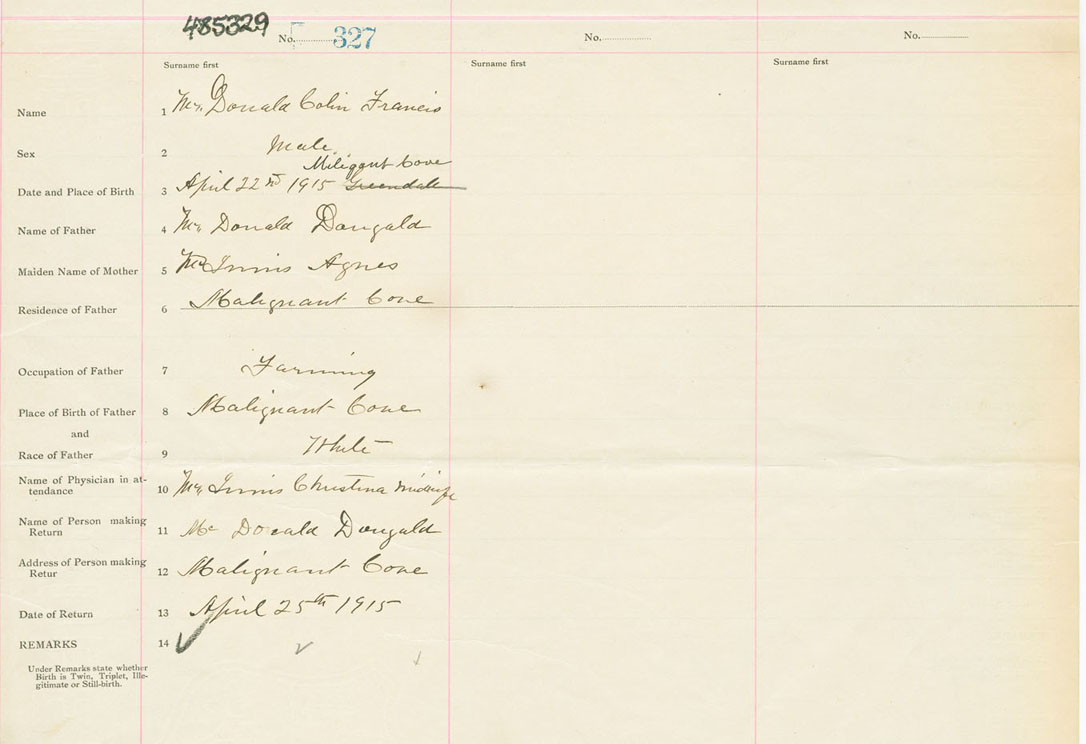 485329
No. 327
No.
No.
Surname first
Surname first
Surname first
Name 1 Mc Donald Colin Francis
Sex 2 Male
Maligant Cove
Date and Place of Birth 3 April 22nd 1915 Greendale
Name of Father 4 Mc Donald Dougald
Maiden Name of Mother 5 Mc Innis Agnes
Residence of Father 6 Malignant Cove
Occupation of Father 7 Farming
Place of Birth of Father 8 Malignant Cove
and
Race of Father 9 White
Name of Physician in at-
tendance 10 Mc Innis Christina midwife
Name of Person making
Return 11 Mc Donald Dougald
Address of Person making
Retur 12 Malignant Cove
Date of Return 13 April 25th 1915
REMARKS 14
Under Remarks state whether
Birth is Twin, Triplet, Ille-
gitimate or Still-birth.